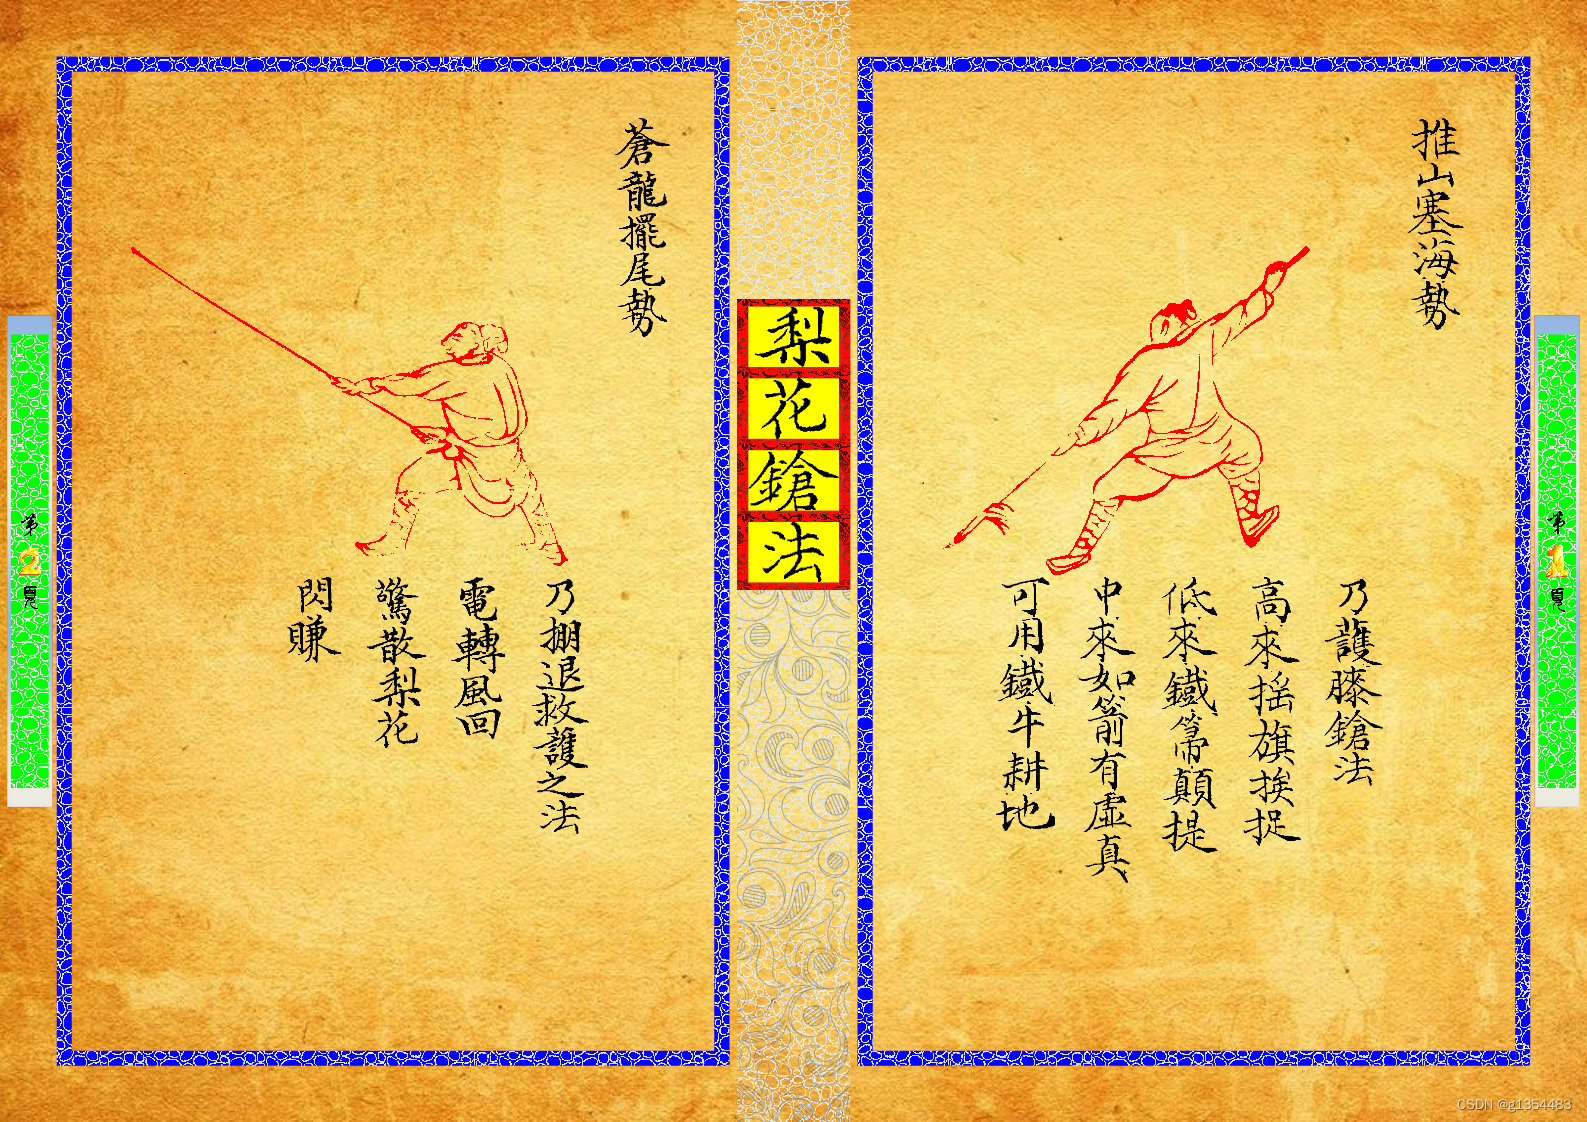 推山塞海勢
乃護膝鎗法
高來搖旗挨捉
低來鐵箒顛提
中來如箭有虛真
可用鐵牛耕地
第1頁
梨花鎗法
蒼龍擺尾勢
乃掤退救護之法
電轉風回
驚散梨花
閃賺
第2頁
CSDN @g1354483